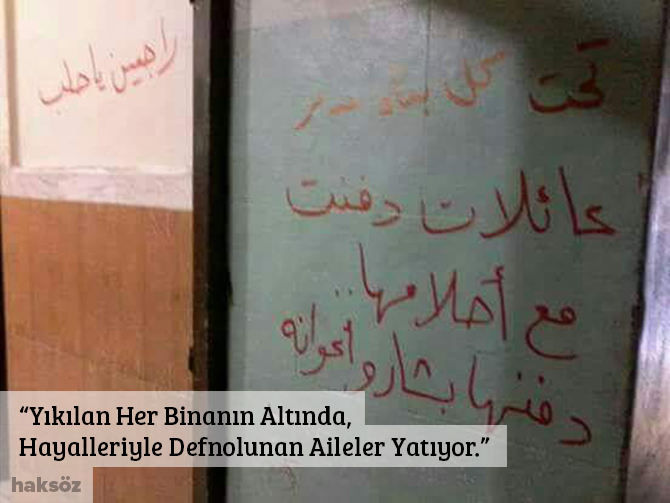 راجعين يا حلب
تحت كل بناء مدمر
عائلات دفنت
مع أحلامها..
دفنها بشار وأعوانه
“Yıkılan Her Binanın Altında,
Hayalleriyle Defnolunan Aileler Yatıyor.”
haksöz